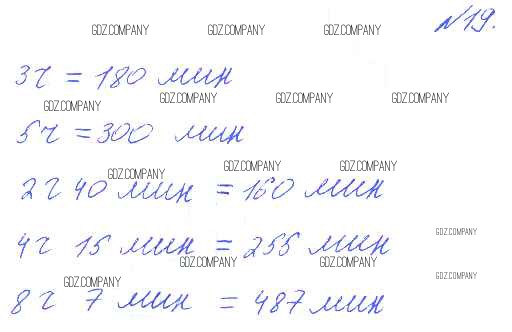 №19.
GDZ.COMPANY GDZ.COMPANY GDZ.COMPANY
3ч = 180 мин
GDZ.COMPANY GDZ.COMPANY GDZ.COMPANY
GDZ.COMPANY
5ч = 300 мин
GDZ.COMPANY GDZ.COMPANY
GDZ.COMPANY
2ч 40 мин = 160 мин
GDZ.COMPANY
4ч 15 мин = 255 мин
GDZ.COMPANY GDZ.COMPANY
GDZ.COMPANY
GDZ.COMPANY
8ч 7 мин = 487 мин